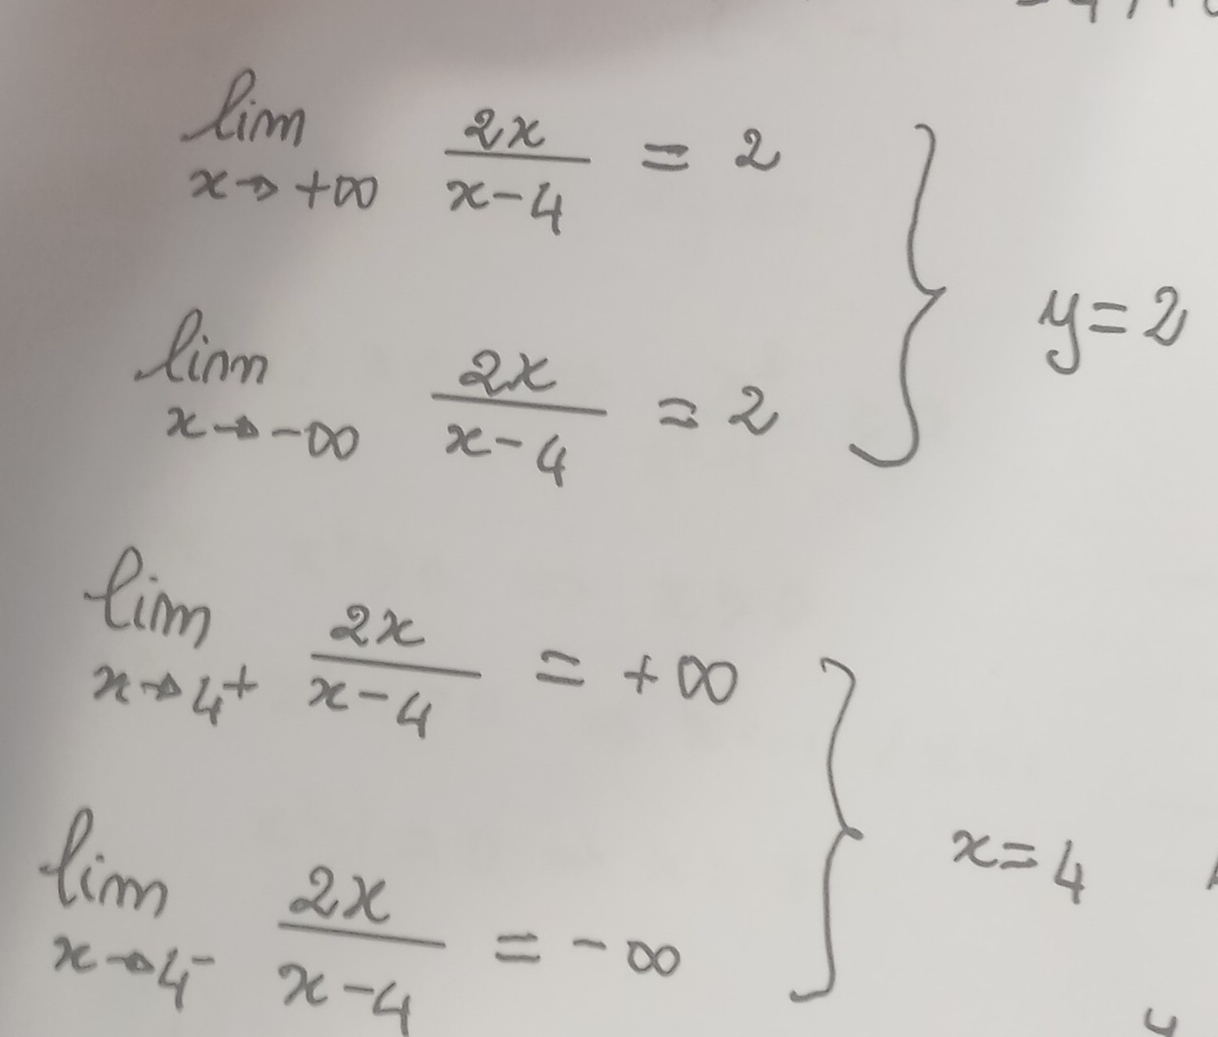 lim x→+∞ 2x/(x-4) = 2
lim x→-∞ 2x/(x-4) = 2 } y=2
lim x→4+ 2x/(x-4) = +∞
lim x→4- 2x/(x-4) = -∞ } x=4